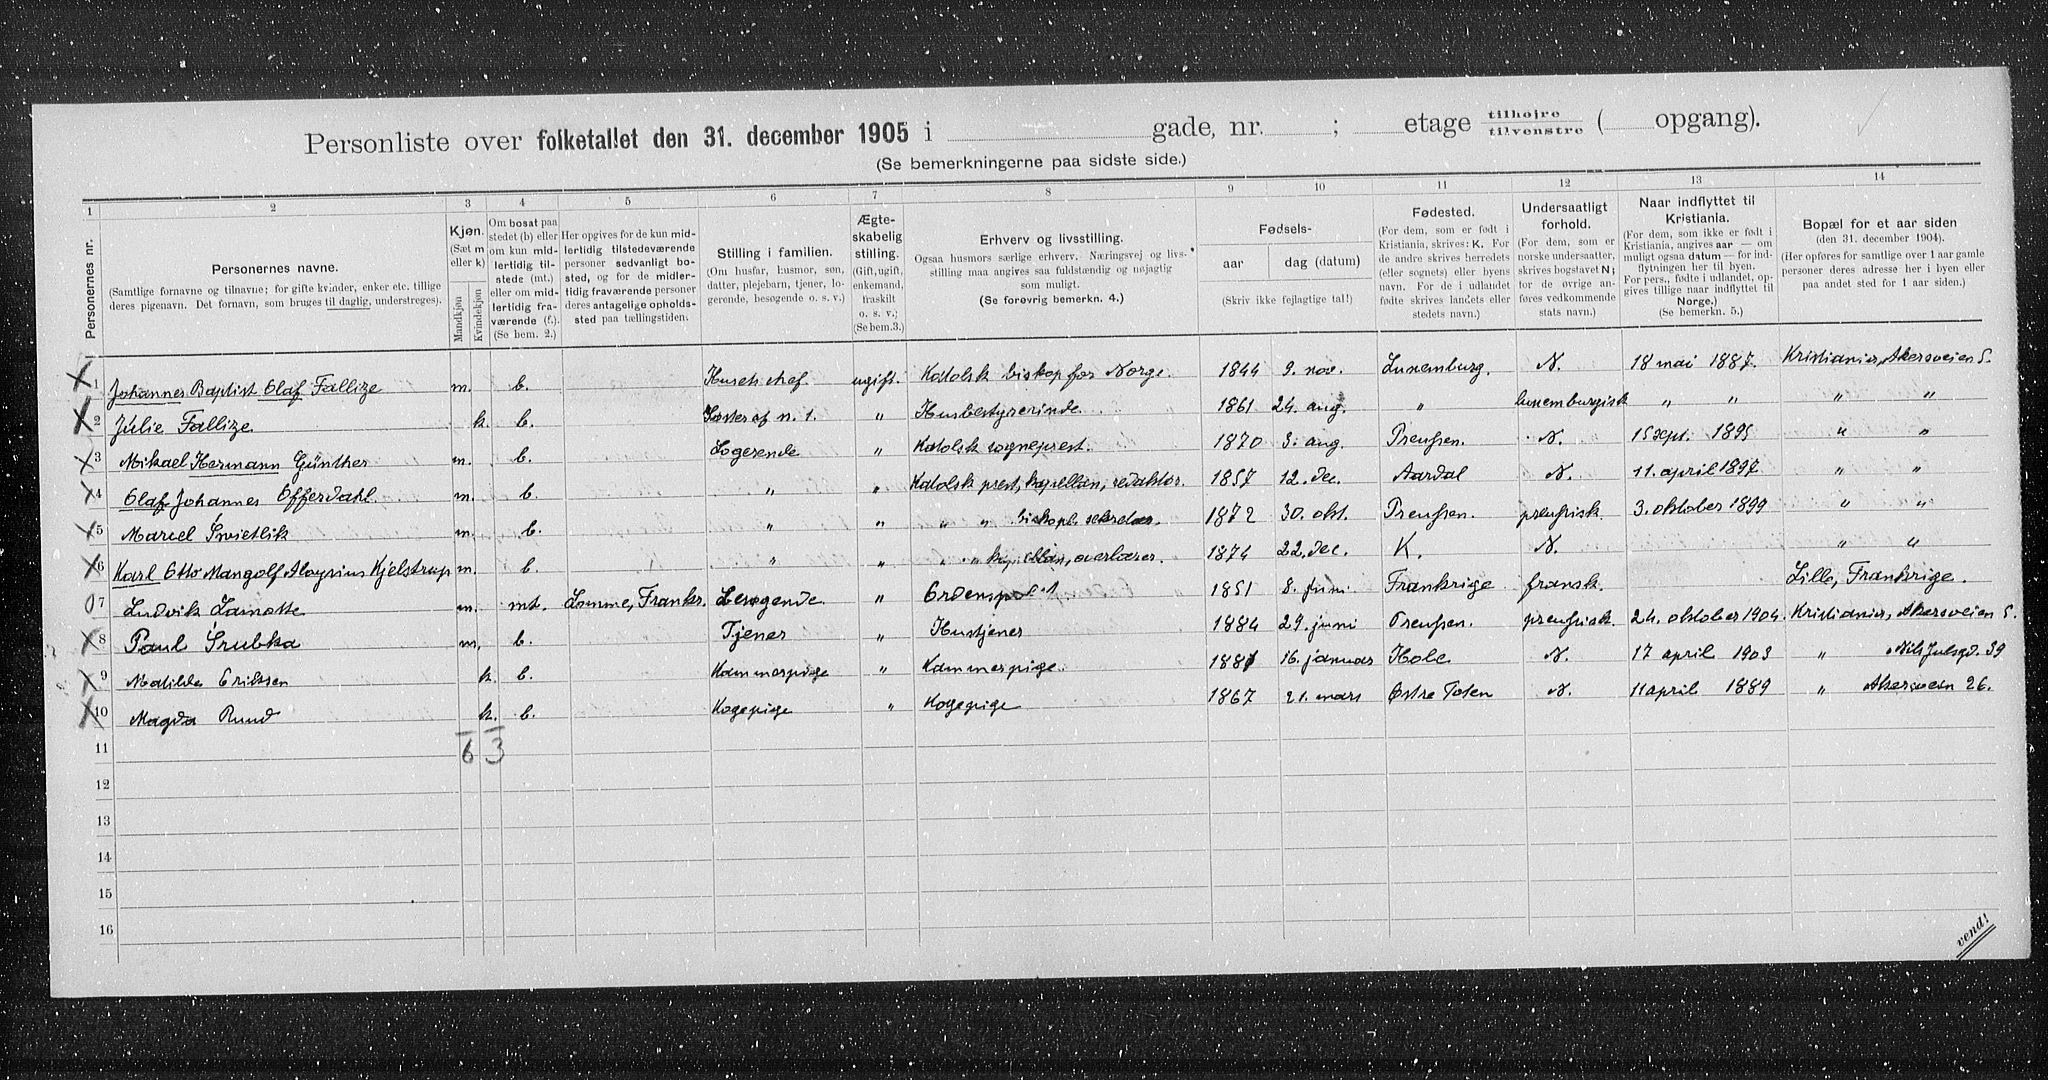 Personliste over folketallet den 31. december 1905 i gade, nr. ; etage tilhøjre tilvenstre ( opgang).
(Se bemerkningerne paa sidste side.)
1 2 3 4 5 6 7 8 9 10 11 12 13 14
Personernes nr.
Personernes navne.
(Samtlige fornavne og tilnavne; for gifte kvinder, enker etc. tillige
deres pigenavn. Det fornavn, som bruges til daglig, understreges).
Kjøn.
(Sæt m
eller k)
Mandkjøn
Kvindekjøn
Om bosat paa
stedet (b) eller
om kun mid-
lertidig til-
stede (mt.)
eller om mid-
lertidig fra-
værende (f.).
(Se bem. 2.)
Her opgives for de kun mid-
lertidig tilstedeværende
personer sedvanligt bo-
sted, og for de midler-
tidig fraværende personer
deres antagelige opholds-
sted paa tællingstiden.
Stilling i familien.
(Om husfar, husmor, søn,
datter, plejebarn, tjener, lo-
gerende, besøgende o. s. v.)
Ægte-
skabelig
stilling.
(Gift, ugift,
enkemand,
fraskilt
o. s. v.;
(Se bem. 3.)
Erhverv og livsstilling.
Ogsaa husmors særlige erhverv. Næringsvej og livs-
stilling maa angives saa fuldstændig og nøjagtig
som muligt.
(Se forøvrig bemerkn. 4.)
Fødsels-
aar dag (datum)
(Skriv ikke fejlagtige tal!)
Fødested.
(For dem, som er født i
Kristiania, skrives: K. For
de andre skrives herredets
(eller sognets) eller byens
navn. For de i udlandet
fødte skrives landets eller
stedets navn.)
Undersaatligt
forhold.
(For dem, som er
norske undersaatter,
skrives bogstavet N;
for de øvrige an-
føres vedkommende
stats navn.)
Naar indflyttet til
Kristiania.
(For dem, som ikke er født i
Kristiania, angives aar — om
muligt ogsaa datum — for ind-
flytningen her til byen.
For pers., fødte i udlandet, op-
gives tillige naar indflyttet til
Norge.)
(Se bemerkn. 5.)
Bopæl for et aar siden
(den 31. december 1904).
(Her opføres for samtlige over 1 aar gamle
personer deres adresse her i byen eller
paa andet sted for 1 aar siden.)
1 Johannes Baptist Olaf Fallize m. b. Husets chef ugift. Katolsk biskop for Norge. 1844 9. nov. Luxemburg. N. 18 mai 1887. Kristiania, Akersveien 5.
2 Julie Fallize k. b. Søster af n. 1. " Husbestyrerinde 1861 24. aug. " luxemburgisk " " " "
3 Mikael Hermann Günther m. b. Logerende " Katolsk sogneprest. 1870 3. aug. Preussen. N. 15 sept. 1895 " "
4 Olaf Johannes Offerdahl m. b. " " Katolsk prest, kapellan, redaktør 1857 12. dec. Aardal N. 11. april 1897. " "
5 Marcel Swietlik m. b. " " " " biskopl. sekretær. 1872 30. okt. Preussen. preussisk. 3. oktober 1899 " "
6 Karl Otto Mangolf Aloysius Kjelstrup m. b. " " " " kapellan, overlærer. 1874 22. dec. K. N. " "
7 Ludvik Lamotte m. mt. Somme, Frankr. Besøgende " Ordensprest 1851 8. juni Frankrige fransk. Lille, Frankrige.
8 Paul Srubka m. b. Tjener " Hustjener 1884 29. juni Preussen. preussisk. 24. oktober 1904. Kristiania, Akersveien 5.
9 Matilde Eriksen k. b. Kammerpige " Kammerpige 1881 16. januar Hole N. 17 april 1903 " Nils Juelsgd. 39
10 Magda Ruud k. b. Kogepige " Kogepige 1867 21. mars Østre Toten N. 11 april 1889 " Akersveien 26.
11 6 3
12
13
14
15
16
vend!